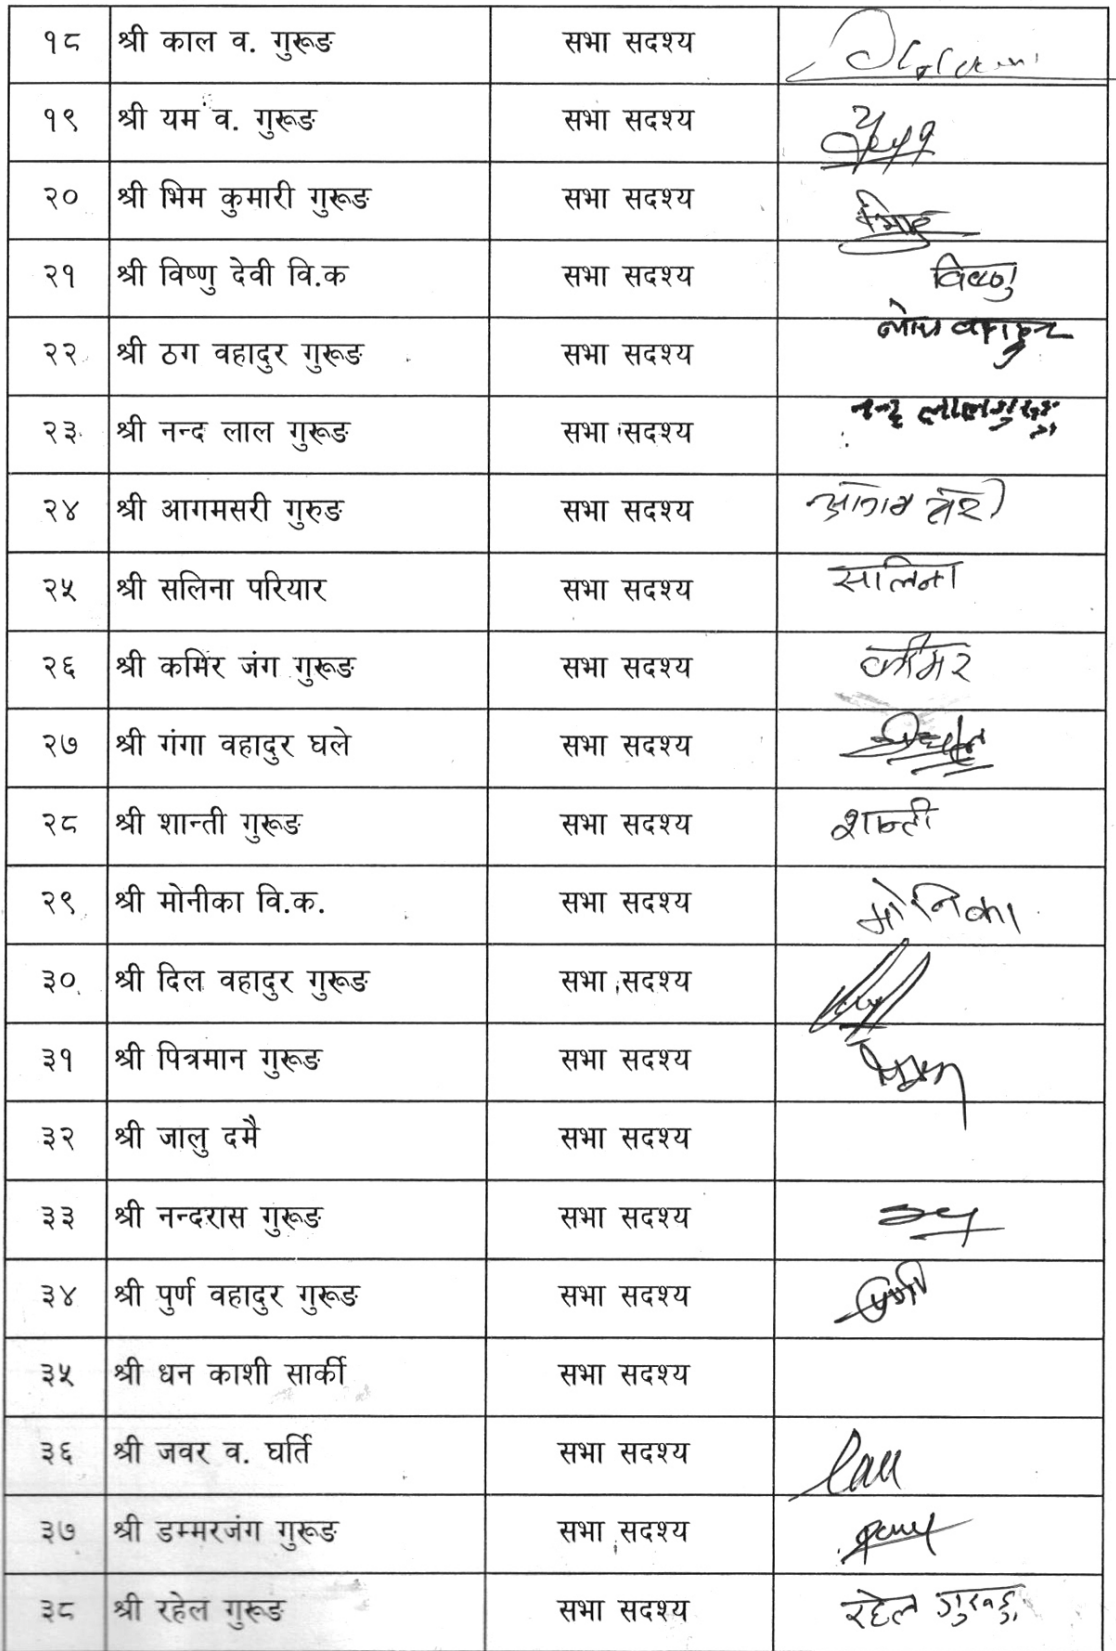 १८ श्री काल व. गुरूङ सभा सदश्य
१९ श्री यम व. गुरूङ सभा सदश्य
२० श्री भिम कुमारी गुरूङ सभा सदश्य
२१ श्री विष्णु देवी वि.क सभा सदश्य विष्णु
२२ श्री ठग वहादुर गुरूङ सभा सदश्य
२३ श्री नन्द लाल गुरूङ सभा सदश्य नन्द लाल गुरूङ
२४ श्री आगमसरी गुरुङ सभा सदश्य
२५ श्री सलिना परियार सभा सदश्य सालिना
२६ श्री कमिर जंग गुरूङ सभा सदश्य
२७ श्री गंगा वहादुर घले सभा सदश्य
२८ श्री शान्ती गुरूङ सभा सदश्य शान्ती
२९ श्री मोनीका वि.क. सभा सदश्य मोनिका
३० श्री दिल वहादुर गुरूङ सभा सदश्य
३१ श्री पित्रमान गुरूङ सभा सदश्य
३२ श्री जालु दमै सभा सदश्य
३३ श्री नन्दरास गुरूङ सभा सदश्य
३४ श्री पुर्ण वहादुर गुरूङ सभा सदश्य
३५ श्री धन काशी सार्की सभा सदश्य
३६ श्री जवर व. घर्ति सभा सदश्य
३७ श्री डम्मरजंग गुरूङ सभा सदश्य
३८ श्री रहेल गुरूङ सभा सदश्य रहेल गुरुङ